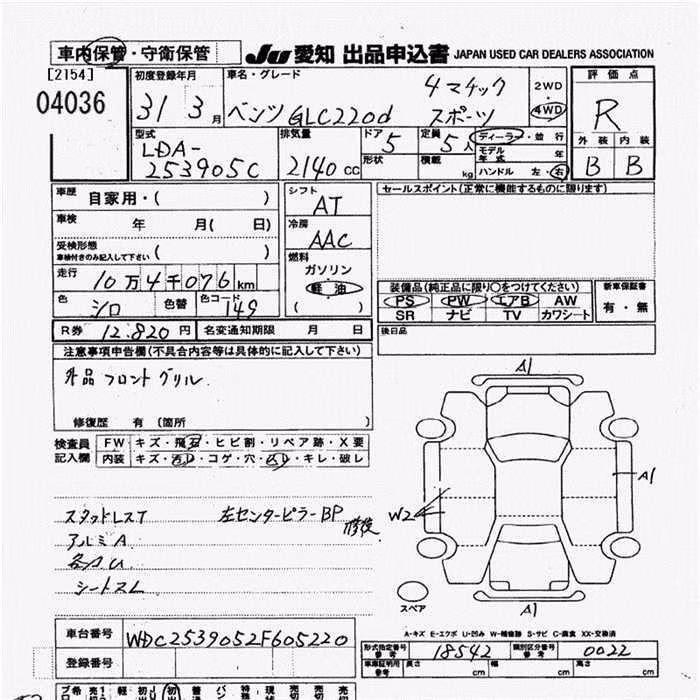 車内保管・守衛保管 JU 愛知 出品申込書 JAPAN USED CAR DEALERS ASSOCIATION
[2154] 初度登録年月 車名・グレード 2WD 評価点
04036 31 3月 ベンツ GLC220d 4マチック スポーツ 4WD R
型式 排気量 ドア 定員 ディーラー・並行 外装 内装
LDA- 253905C 2140cc 5 5人 モデル年式 年 B B
形状 積載 kg ハンドル 左・右
車歴 自家用・( ) シフト AT セールスポイント(正常に機能するものに限ります)
車検 年 月( 日) 冷房 AAC
受検形態 車検付きのみ記入して下さい ( ) 燃料
走行 10万4千076km ガソリン 装備品(純正品に限り○をつけてください) 新車保証書
色 シロ 色替 色コード 149 軽油 ( ) PS PW エアB AW 有・無
SR ナビ TV カワシート
R券 12.820円 名変通知期限 月 日 後日品
注意事項申告欄(不具合内容等は具体的に記入して下さい)
外品フロントグリル. A1
修復歴 有(箇所 )
検査員 FW キズ・飛石・ヒビ割・リペア跡・X要
記入欄 内装 キズ・汚れ・コゲ・穴・ムレ・キレ・破レ A1
スタッドレスT 左センターピラーBP 修後 W2
アルミA
各カU
シートスレ
スペア A1
A-キズ E-エクボ U-凹み W-補修跡 S-サビ C-腐食 XX-交換済
車台番号 WDC2539052F605220
型式指定番号 参考 18542 類別区分番号 参考 0022
登録番号 車庫証明用 参考 長さ cm 幅 cm 高さ cm